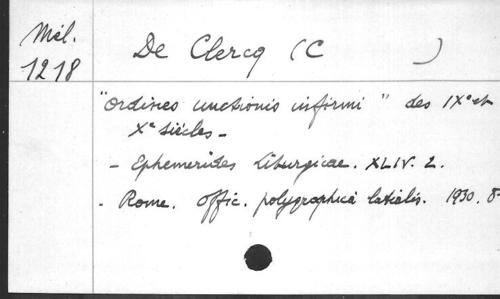 Mél.
1218
De Clercq (C )
"Ordines unctionis infirmi" des IXe et
Xe siècles -
- Ephemerides Liturgicae. XLIV. 2.
- Rome. Offic. polygraphica latialis. 1930. 8-